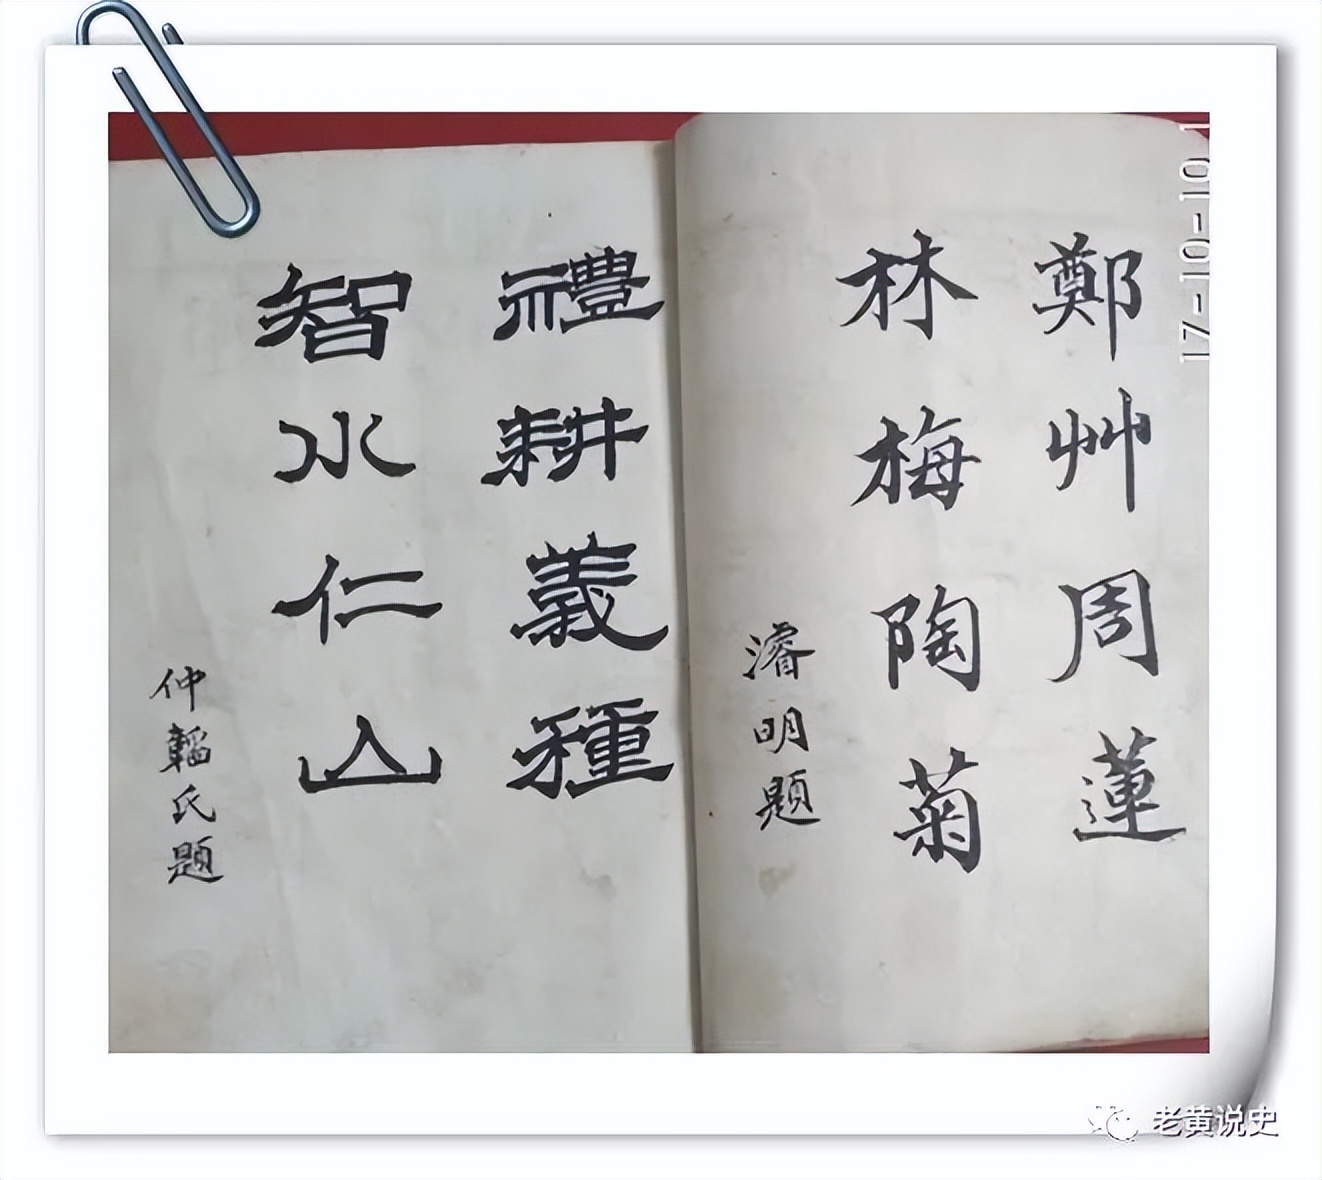 鄭艸周蓮
林梅陶菊
濬明題
禮耕義種
智水仁山
仲韜氏題
17-10-10 1
老黄说史